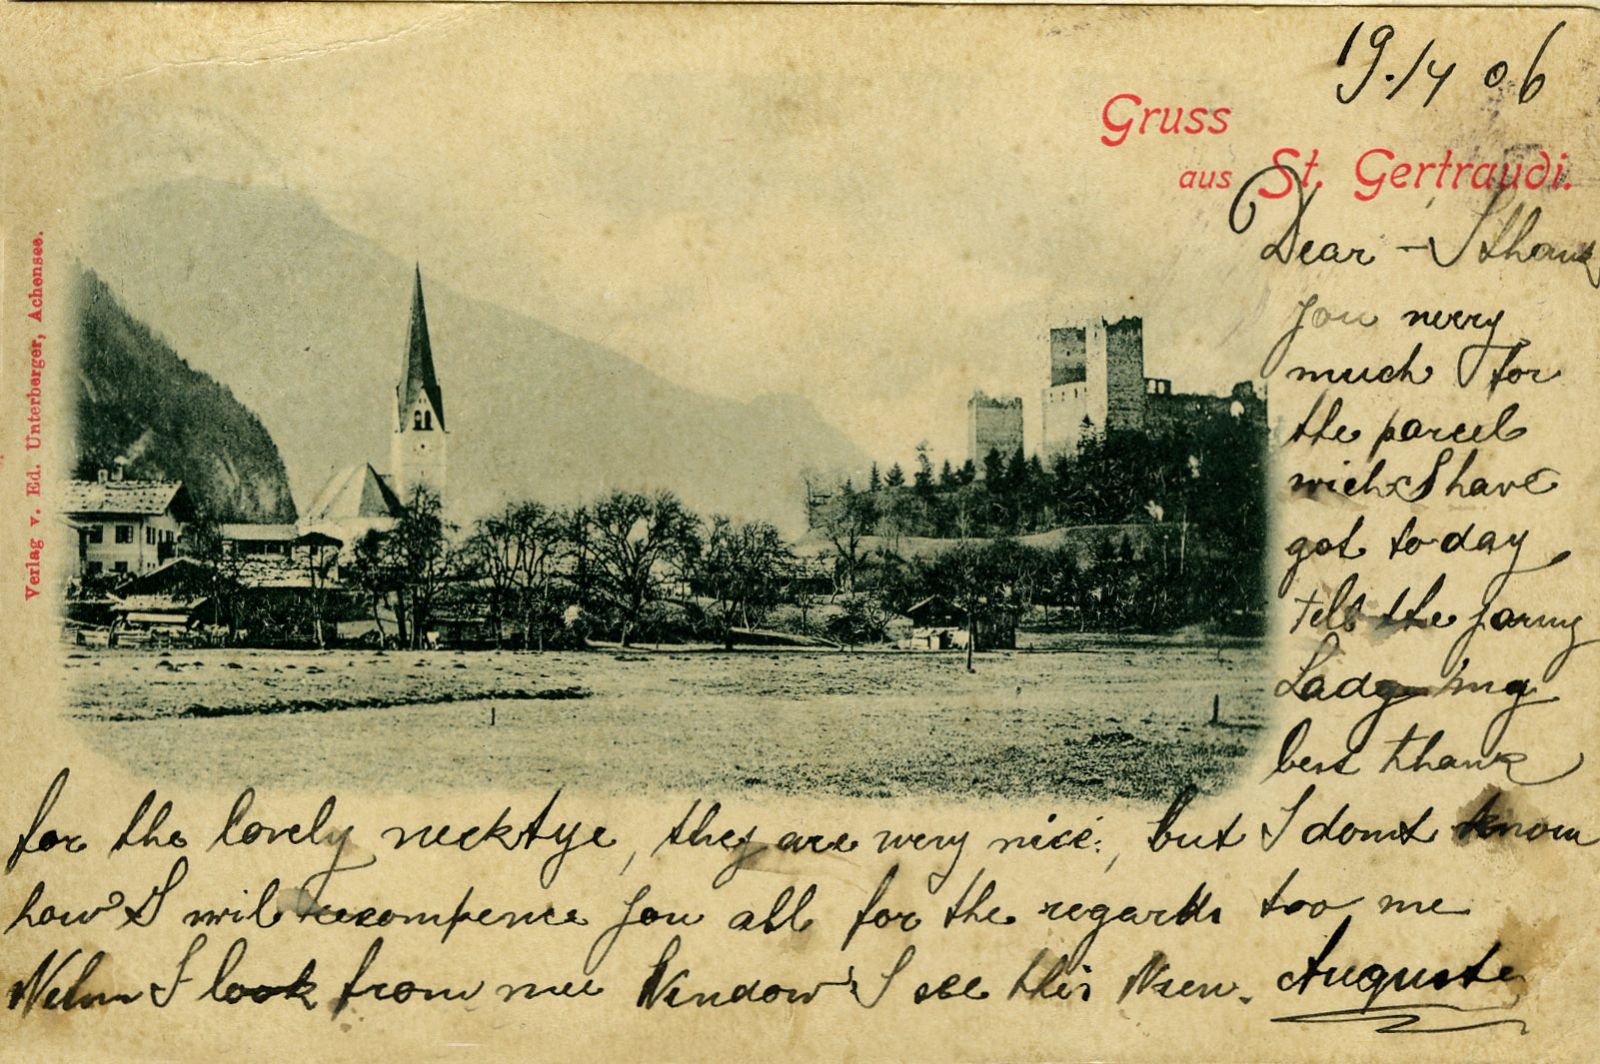 19./4 06
Gruss
aus St. Gertraudi.
Verlag v. Ed. Unterberger, Achensee.
Dear - I thank
you werry
much for
the parcel
wich I have
got to day,
tell the
Lady my
best thank
for the lovely necktye, they are wery nice, but I dont know
how I wil recompence you all for the regards too me
I look from mee Window I see this Wiew. Auguste